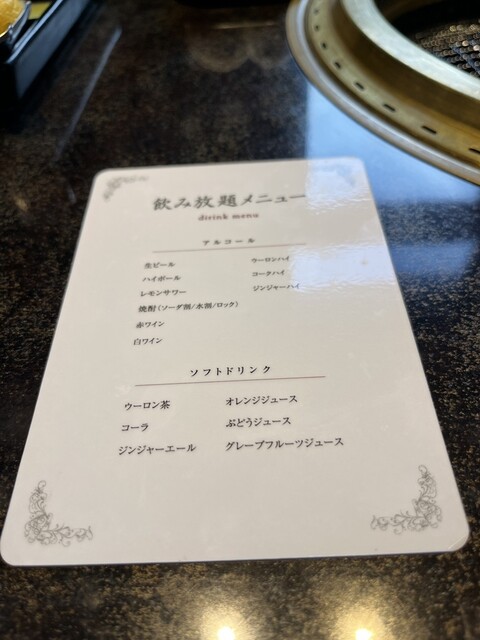 飲み放題メニュー
drink menu
アルコール
生ビール
ハイボール
レモンサワー
焼酎(ソーダ割/水割/ロック)
赤ワイン
白ワイン
ウーロンハイ
コークハイ
ジンジャーハイ
ソフトドリンク
ウーロン茶
コーラ
ジンジャーエール
オレンジジュース
ぶどうジュース
グレープフルーツジュース